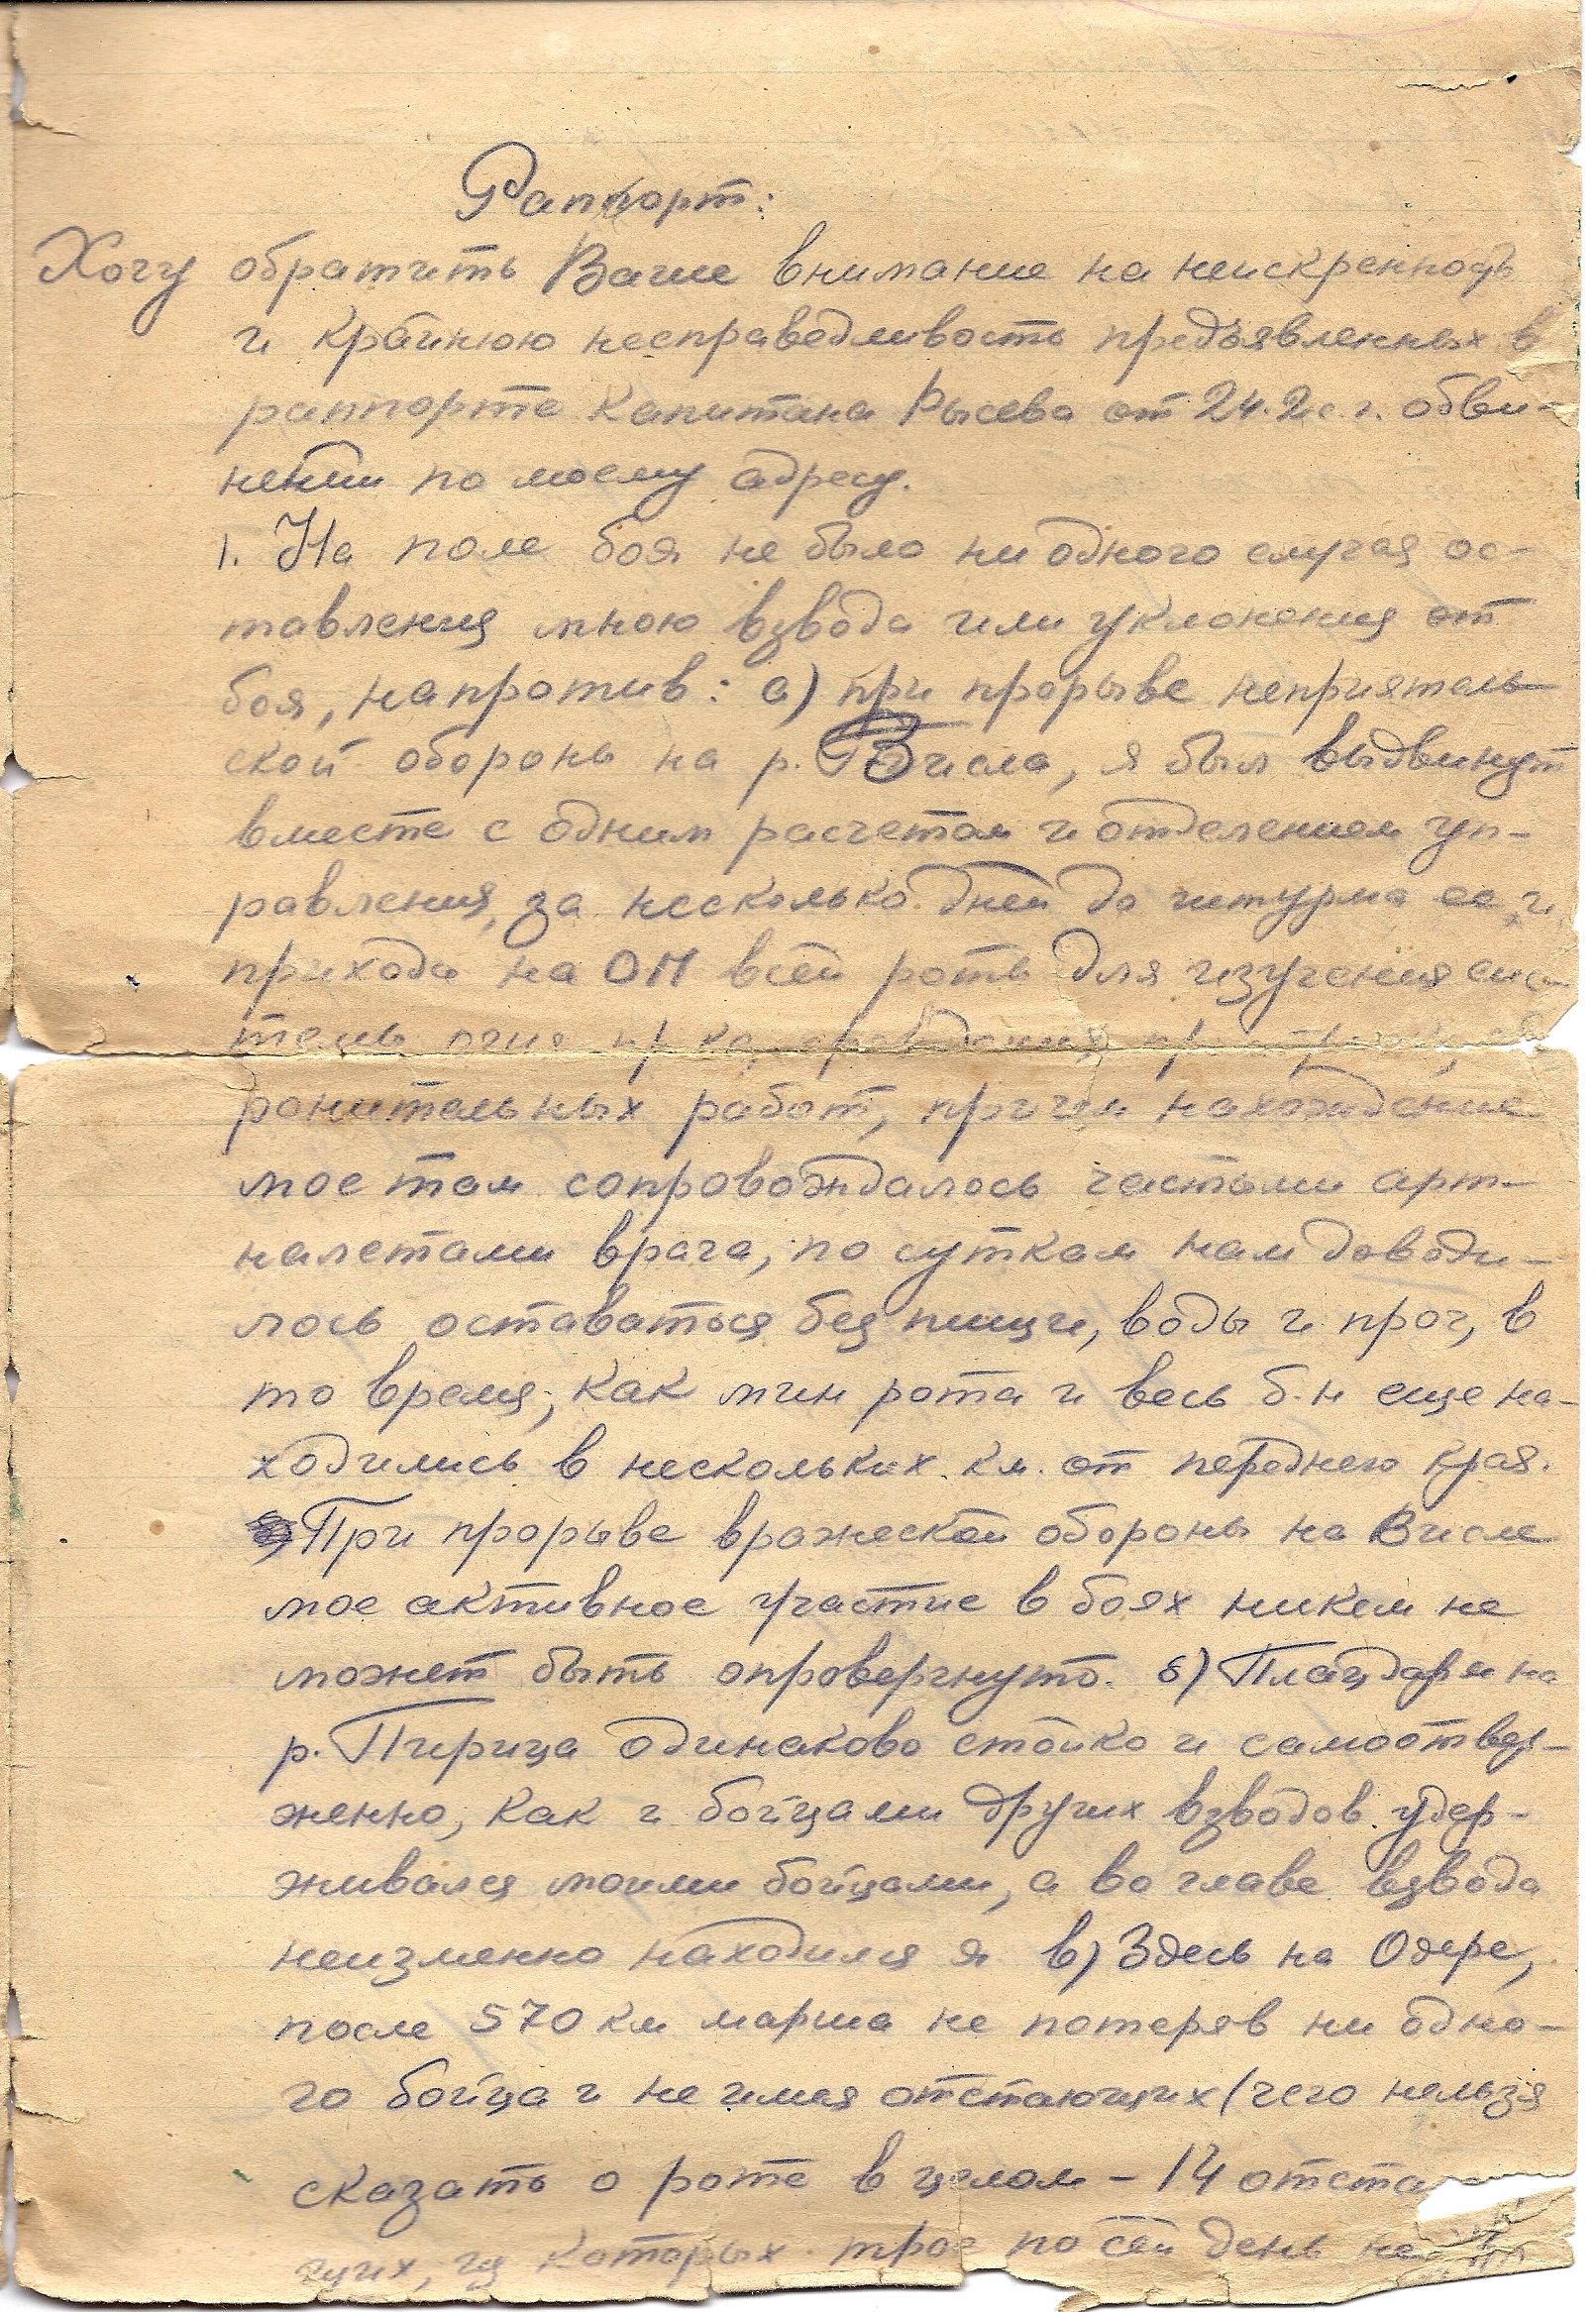 Раппорт:
Хочу обратить Ваше внимание на неискренность
и крайнюю несправедливость предъявленных в
раппорте капитана Рысева от 24.2 с.г. обви-
нений по моему адресу.
1. На поле боя не было ни одного случая ос-
тавления мною взвода или уклонения от
боя, напротив: а) при прорыве неприятель-
ской обороны на р. Висла, я был выдвинут
вместе с одним расчетом и отделением уп-
равления, за несколько дней до штурма ее, и
прихода на ОП всей роты для изучения сис-
темы огня пр-ка,
ронительных работ, причем нахождение
мое там сопровождалось частыми арт-
налетами врага, по суткам нам доводи-
лось оставаться без пищи, воды и проч, в
то время, как мин рота и весь б-н еще на-
ходились в нескольких км. от переднего края.
При прорыве вражеской обороны на Висле
мое активное участие в боях никем не
может быть опровергнуто. б) Плацдарм на
р. Пирица одинаково стойко и самоотвер-
женно, как и бойцами других взводов удер-
живался моими бойцами, а во главе взвода
неизменно находился я в) Здесь на Одере,
после 570 км марша не потеряв ни одно-
го бойца и не имея отстающих (чего нельзя
сказать о роте в целом - 14 отста
щих, из которых трое по сей день не